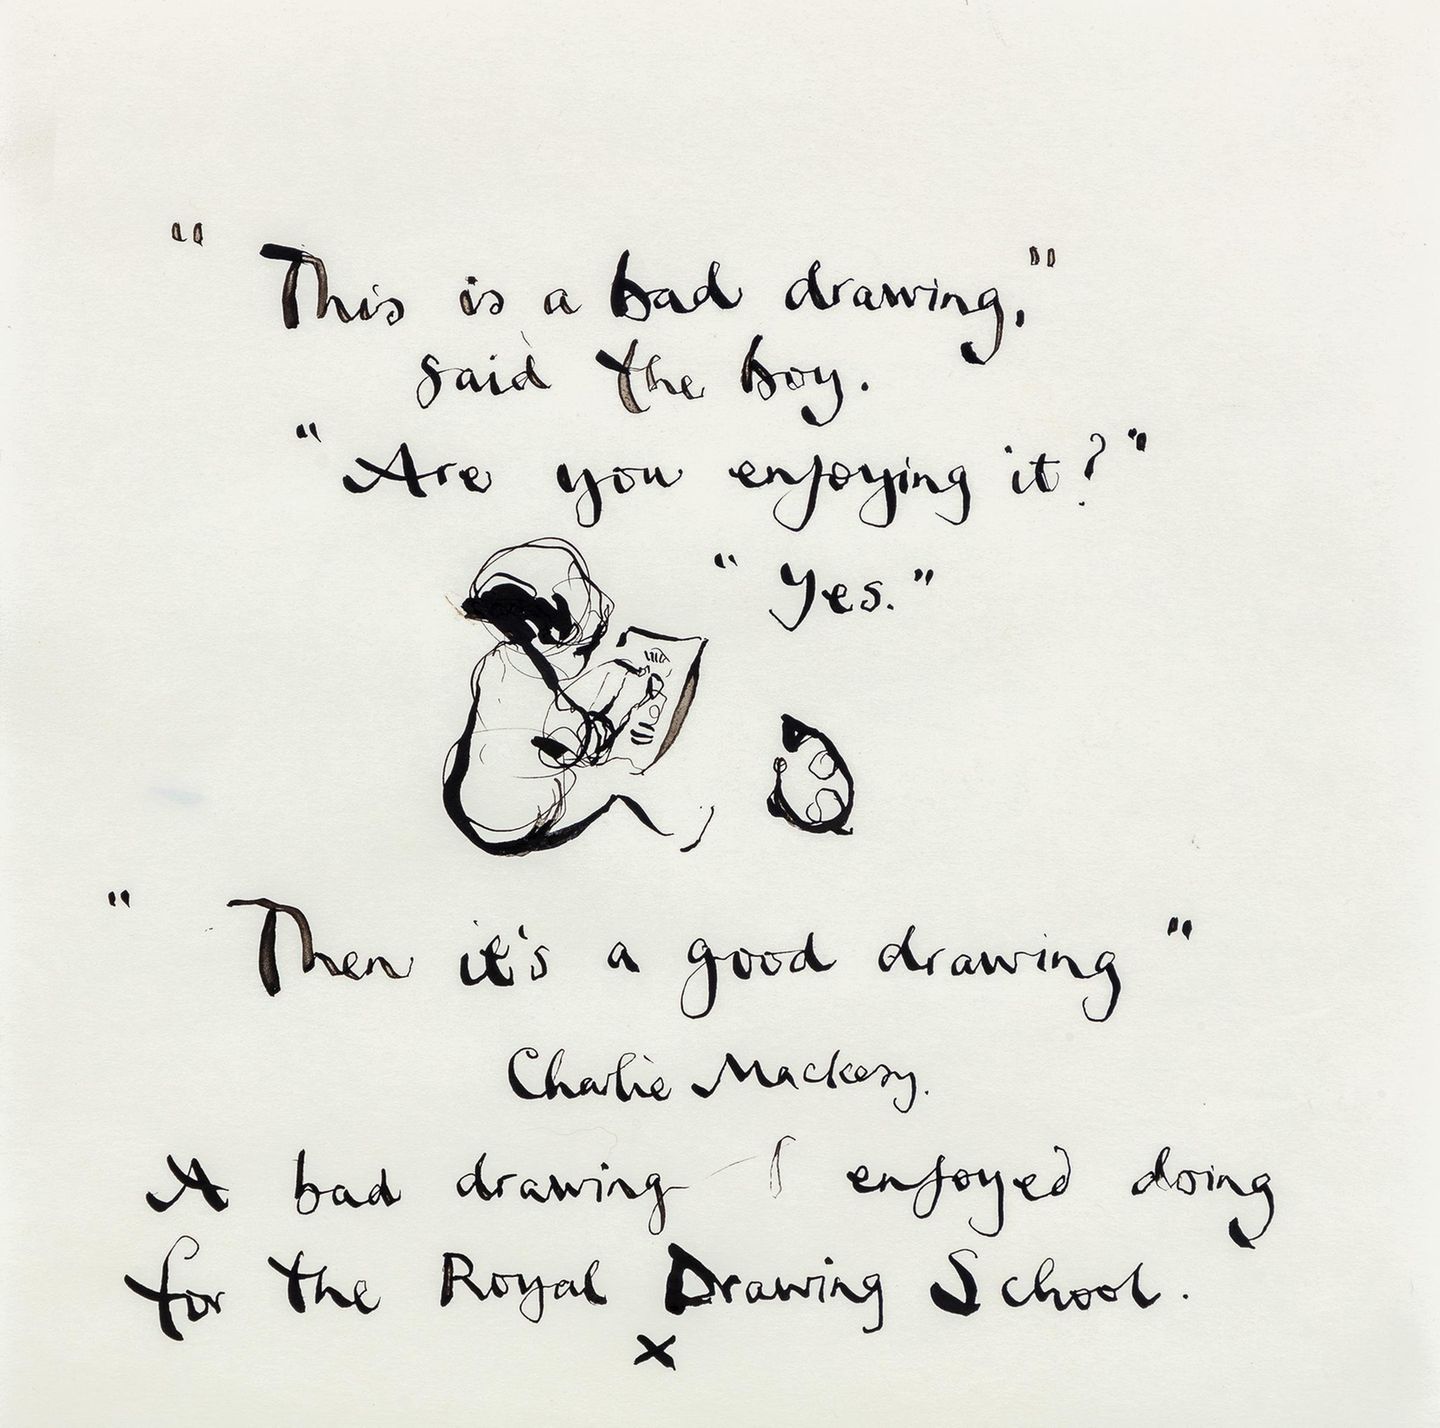 "This is a bad drawing,"
said the boy.
"Are you enjoying it?"
"Yes."
"Then it's a good drawing"
Charlie Mackesy.
A bad drawing I enjoyed doing
for the Royal Drawing School.
x